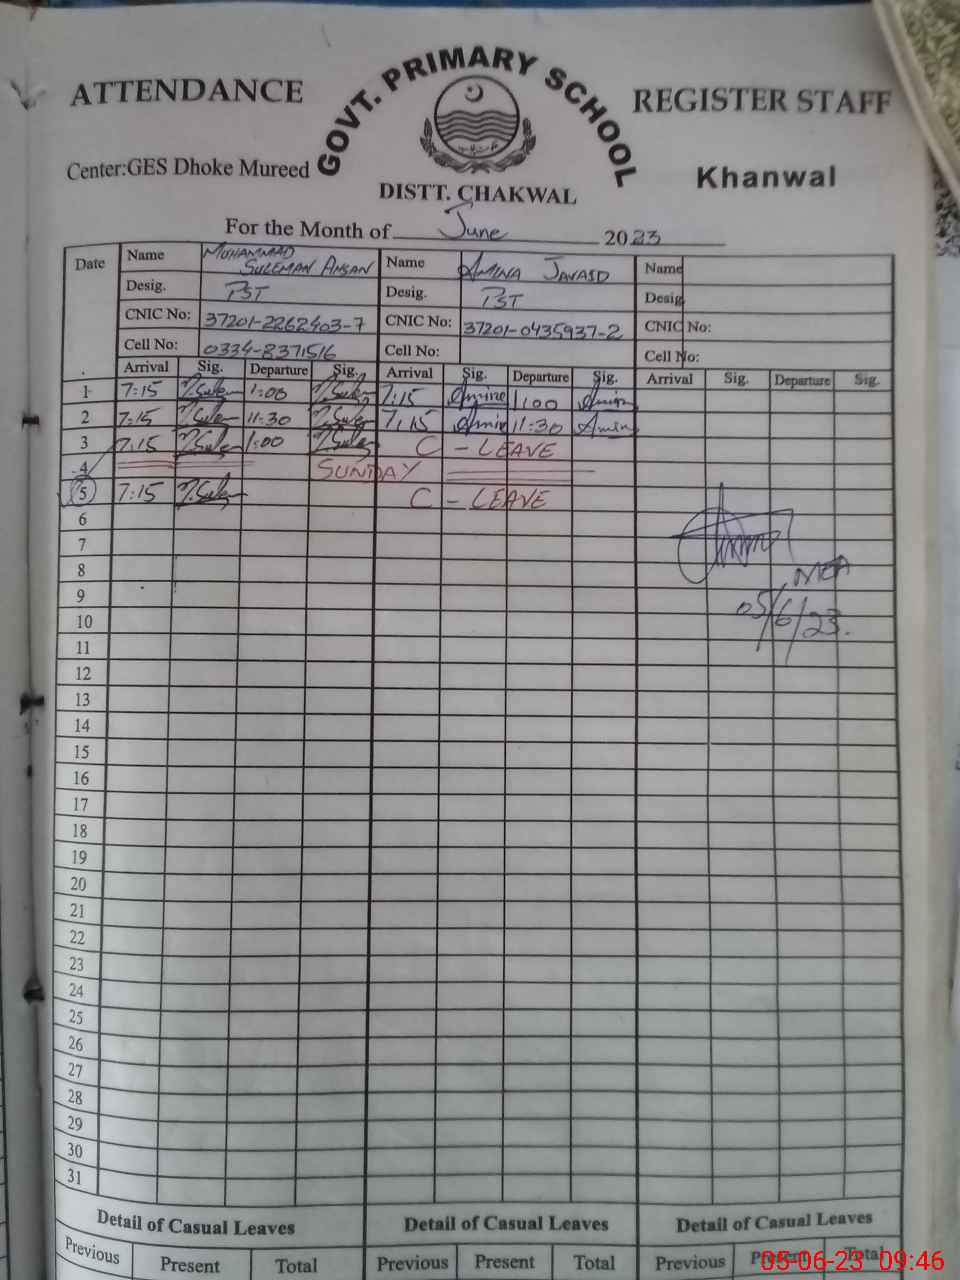 ATTENDANCE GOVT. PRIMARY SCHOOL REGISTER STAFF
Center:GES Dhoke Mureed Khanwal
DISTT. CHAKWAL
For the Month of June 2023
Date Name MUHAMMAD SULEMAN AHSAN Name AMINA JAVAID Name
Desig. PST Desig. PST Desig.
CNIC No: 37201-2262403-7 CNIC No: 37201-0435937-2 CNIC No:
Cell No: 0334-8371516 Cell No: Cell No:
Arrival Sig. Departure Sig. Arrival Sig. Departure Sig. Arrival Sig. Departure Sig.
1 7:15 M.Sulem 1:00 M.Sulem 7:15 Amina 1:00 Amina
2 7:15 M.Sulem 11:30 M.Sulem 7:15 Amina 11:30 Amina
3 7:15 M.Sulem 1:00 M.Sulem C - LEAVE
4 SUNDAY
5 7:15 M.Sulem C - LEAVE
6
7
8 MEA
9 05/6/23.
10
11
12
13
14
15
16
17
18
19
20
21
22
23
24
25
26
27
28
29
30
31
Detail of Casual Leaves Detail of Casual Leaves Detail of Casual Leaves
Previous Present Total Previous Present Total Previous Present Total
05-06-23 09:46